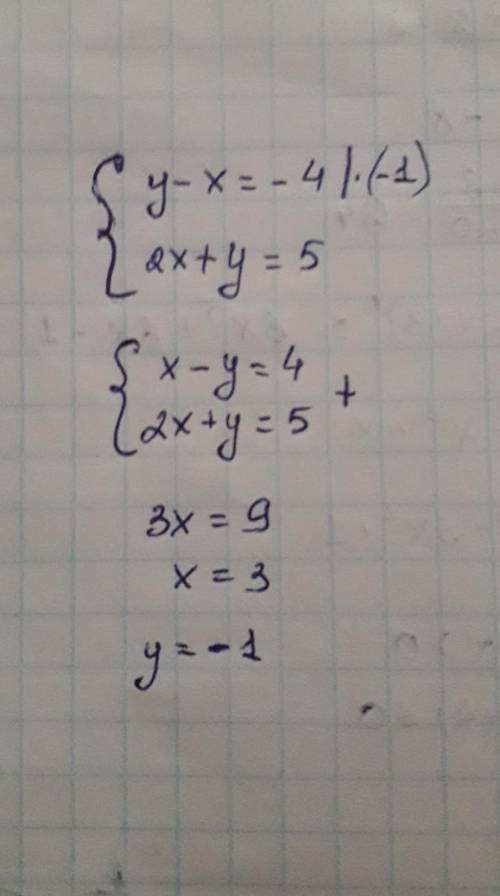 y - x = - 4 | · (-1)
2x + y = 5
x - y = 4
2x + y = 5 +
3x = 9
x = 3
y = - 1